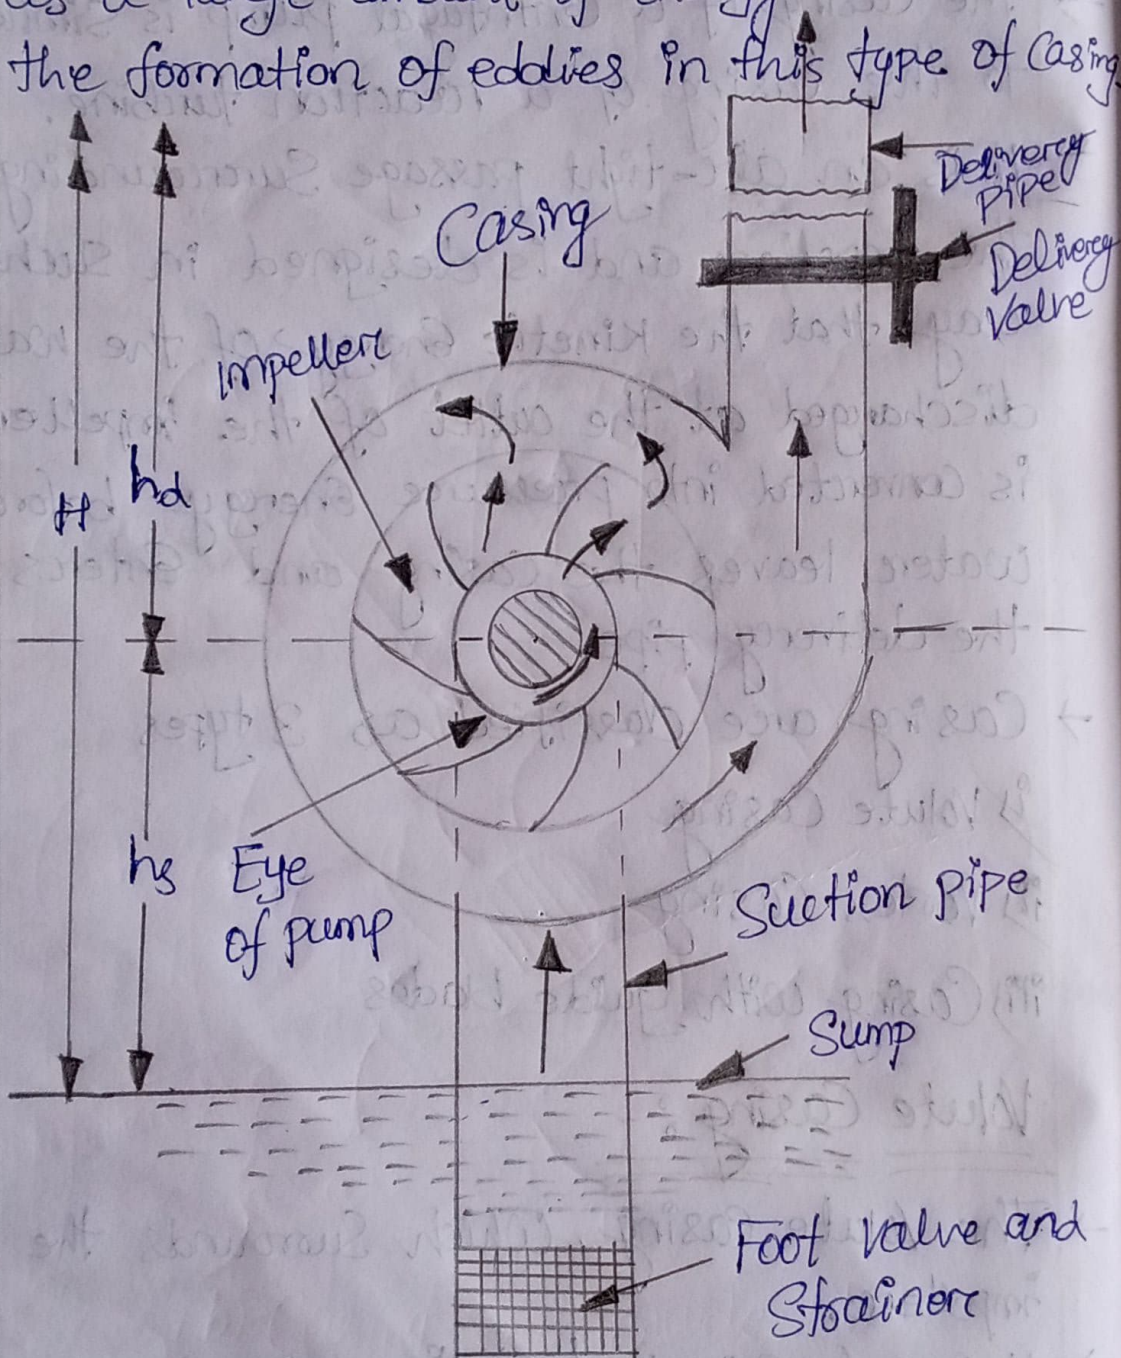 the formation of eddies in this type of Casing
Delivery
pipe
Delivery
Valve
Casing
Impeller
H
hd
hs
Eye
of pump
Suction pipe
Sump
Foot valve and
Strainer